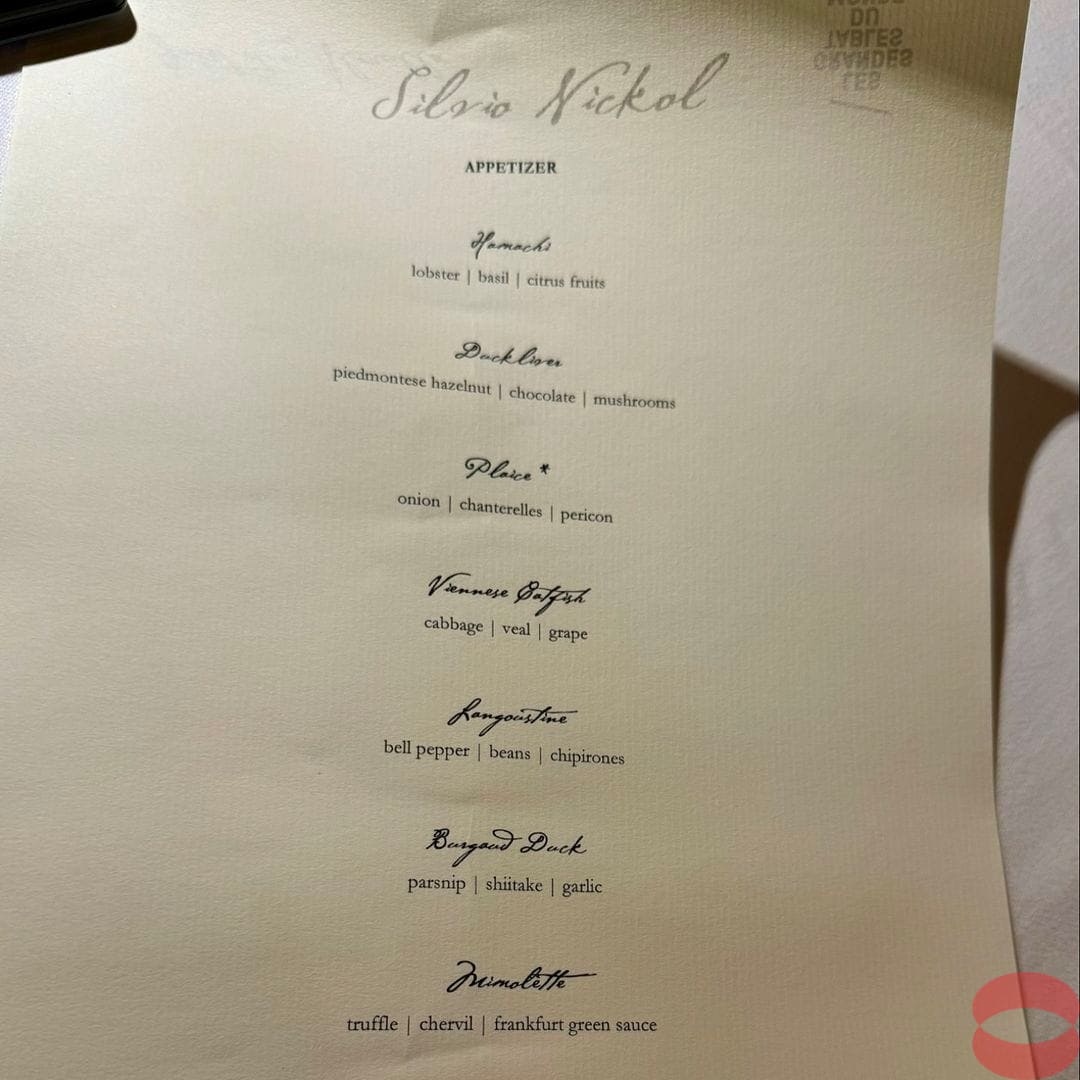 Silvio Nickol
LES
GRANDES
TABLES
DU
MONDE
APPETIZER
Hamachi
lobster | basil | citrus fruits
Duckliver
piedmontese hazelnut | chocolate | mushrooms
Plaice *
onion | chanterelles | pericon
Viennese Catfish
cabbage | veal | grape
Langoustine
bell pepper | beans | chipirones
Burgaud Duck
parsnip | shiitake | garlic
Mimolette
truffle | chervil | frankfurt green sauce